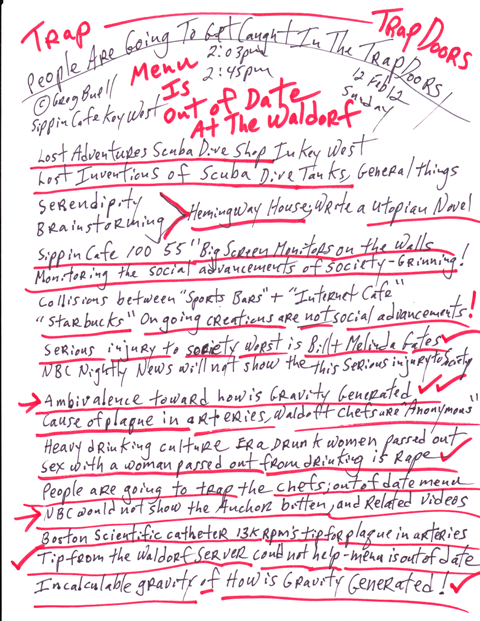 Trap
Trap Doors
People Are Going To Get Caught In The Trap Doors!
2:03pm
2:45pm
© Greg Buell
Sippin Cafe Key West
12 Feb 12
Sunday
Menu
Is
Out of Date
At The Waldorf
Lost Adventures Scuba Dive Shop In Key West
Lost Inventions of Scuba Dive Tanks, General things
Serendipity
Brainstorming > Hemingway House, Write a Utopian Novel
Sippin Cafe 100 55" Big Screen Monitors on the Walls
Monitoring the social advancements of society-Grinning!
Collisions between "Sports Bars" + "Internet Cafe"
"Starbucks" On going creations are not social advancements!
Serious injury to society worst is Bill + Melinda Gates
NBC Nightly News will not show the this Serious injury to society
Ambivalence toward how is Gravity Generated
Cause of plague in arteries, Waldoft Chefs are "Anonymous"
Heavy drinking culture Era Drunk women passed out
Sex with a woman passed out from drinking is Rape
People are going to trap the chefs; out of date menu
NBC would not show the Anchor bitten, and Related Videos
Boston Scientific catheter 13K rpm's tip for plague in arteries
Tip from the Waldorf server could not help - menu is out of date
Incalculable gravity of How is Gravity Generated!